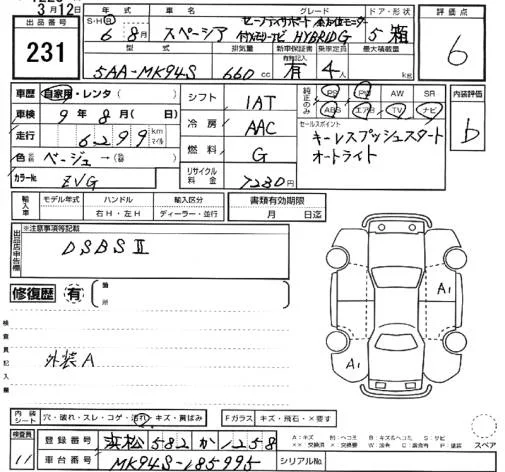 3月12日
出品番号
231
年式 車名 グレード ドア・形状
S・H・R 6 8月 スペーシア セーフティサポート 全方位モニター付メモリーナビ HYBRID G 5 箱
型式 排気量 新車保証書 乗車定員 最大積載量
有効記入
5AA-MK94S 660cc 有 4人 kg
評価点
6
車歴 自家用・レンタ ( )
車検 9年8月( 日)
走行 6299 km マイル
色 ベージュ→( )
カラーNo. ZVG
シフト 1AT
冷房 AAC
燃料 G
リサイクル料金 7280
純正のみ PS PW AW SR
ABS エアB TV ナビ
セールスポイント
キーレスプッシュスタート
オートライト
内装評価
b
輸入車 モデル年式 ハンドル 輸入区分
年 右H・左H ディーラー・並行
書類有効期限
月 日迄
出品店申告欄
※注意事項等記載
DSBSⅡ
修復歴 有 箇所
検査員記入欄
外装A
A1
A1
内装シート 穴・破れ・スレ・コゲ・汚れ・キズ・黄ばみ
Fガラス キズ・飛石・×要す
検査員
11
登録番号 浜松 582 か 1258
車台番号 MK94S-185995
シリアルNo.
A:キズ B:キズ&ヘコミ S:サビ
スペア